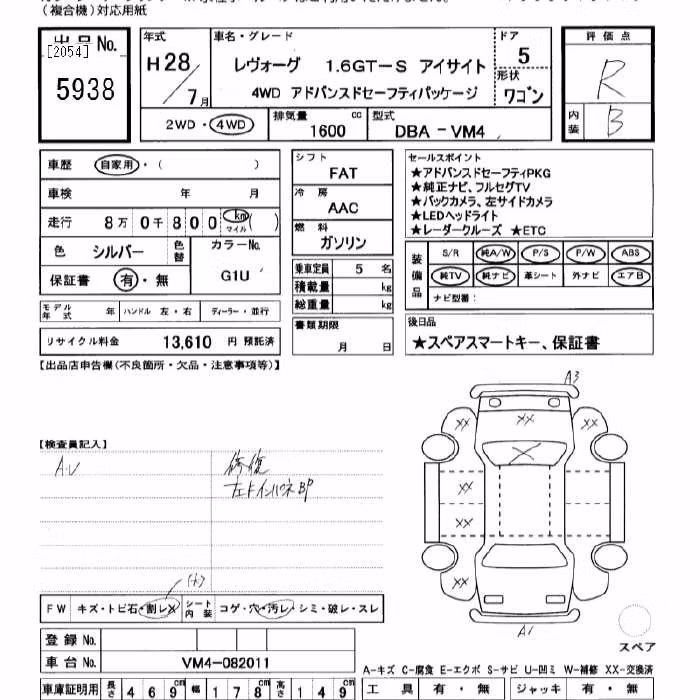 （複合機）対応用紙
出品 No.
[2054]
5938
年式
H28/7月
車名・グレード
レヴォーグ 1.6GT-S アイサイト
4WD アドバンスドセーフティパッケージ
ドア
5
形状
ワゴン
2WD・4WD
排気量 1600 cc
型式 DBA-VM4
評価点
R
内装 B
車歴 自家用・（ ）
車検 年 月
走行 8万0千800 km マイル ( )
色 シルバー 色替
カラーNo. G1U
保証書 有・無
モデル年式 年 ハンドル 左・右 ディーラー・並行
リサイクル料金 13,610 円 預託済
シフト
FAT
冷房
AAC
燃料
ガソリン
乗車定員 5 名
積載量 kg
総重量 kg
書類期限
月 日
セールスポイント
★アドバンスドセーフティPKG
★純正ナビ、フルセグTV
★バックカメラ、左サイドカメラ
★LEDヘッドライト
★レーダークルーズ ★ETC
装備品
S/R 純A/W P/S P/W ABS
純TV 純ナビ 革シート 外ナビ エアB
ナビ型番：
後日品
★スペアスマートキー、保証書
【出品店申告欄(不良箇所・欠品・注意事項等)】
【検査員記入】
A.U
修復
左Fインパネ BP
FW キズ・トビ石・割レX シート内装 コゲ・穴・汚レ・シミ・破レ・スレ
登録 No.
車台 No. VM4-082011
車庫証明用 長さ 469cm 幅 178cm 高さ 149cm
A3
XX XX XX
X
XX
XX
XX
A1
スペア
A-キズ C-腐食 E-エクボ S-サビ U-凹ミ W-補修 XX-交換済
工具 有・無 ジャッキ 有・無